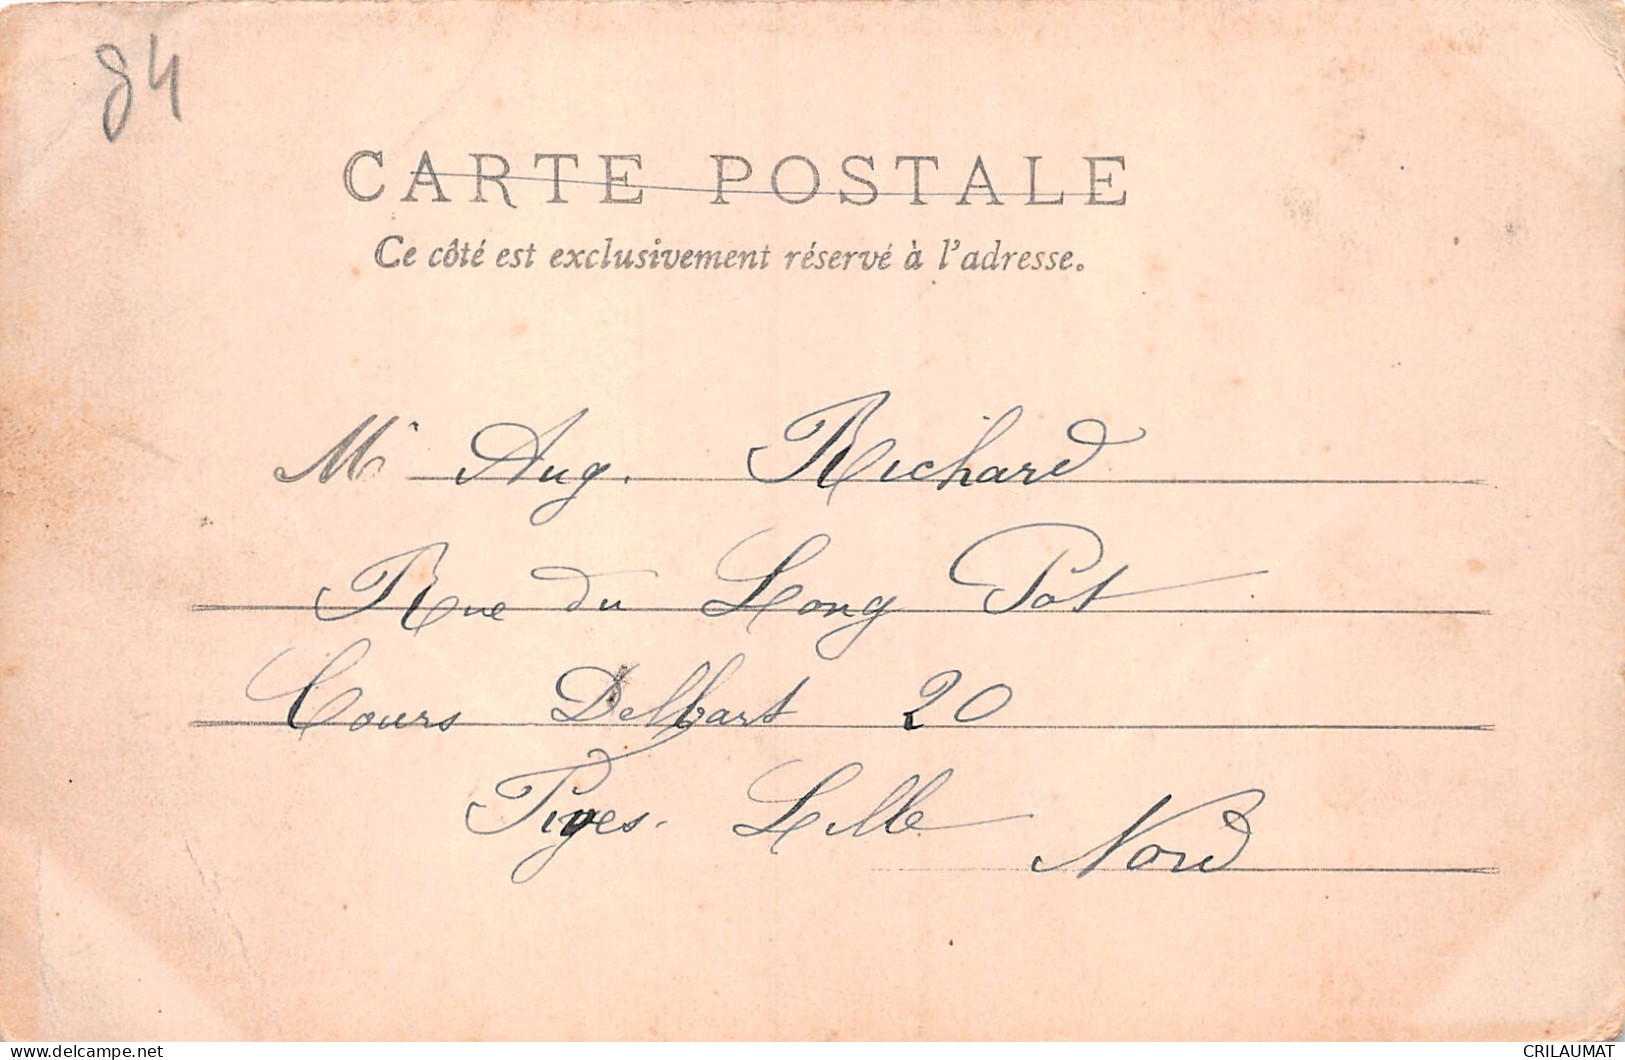 84
CARTE POSTALE
Ce côté est exclusivement réservé à l'adresse.
Mr Aug. Richard
Rue du Long Pot
Cours Delbart 20
Fives. Lille
Nord
delcampe.net
CRILAUMAT